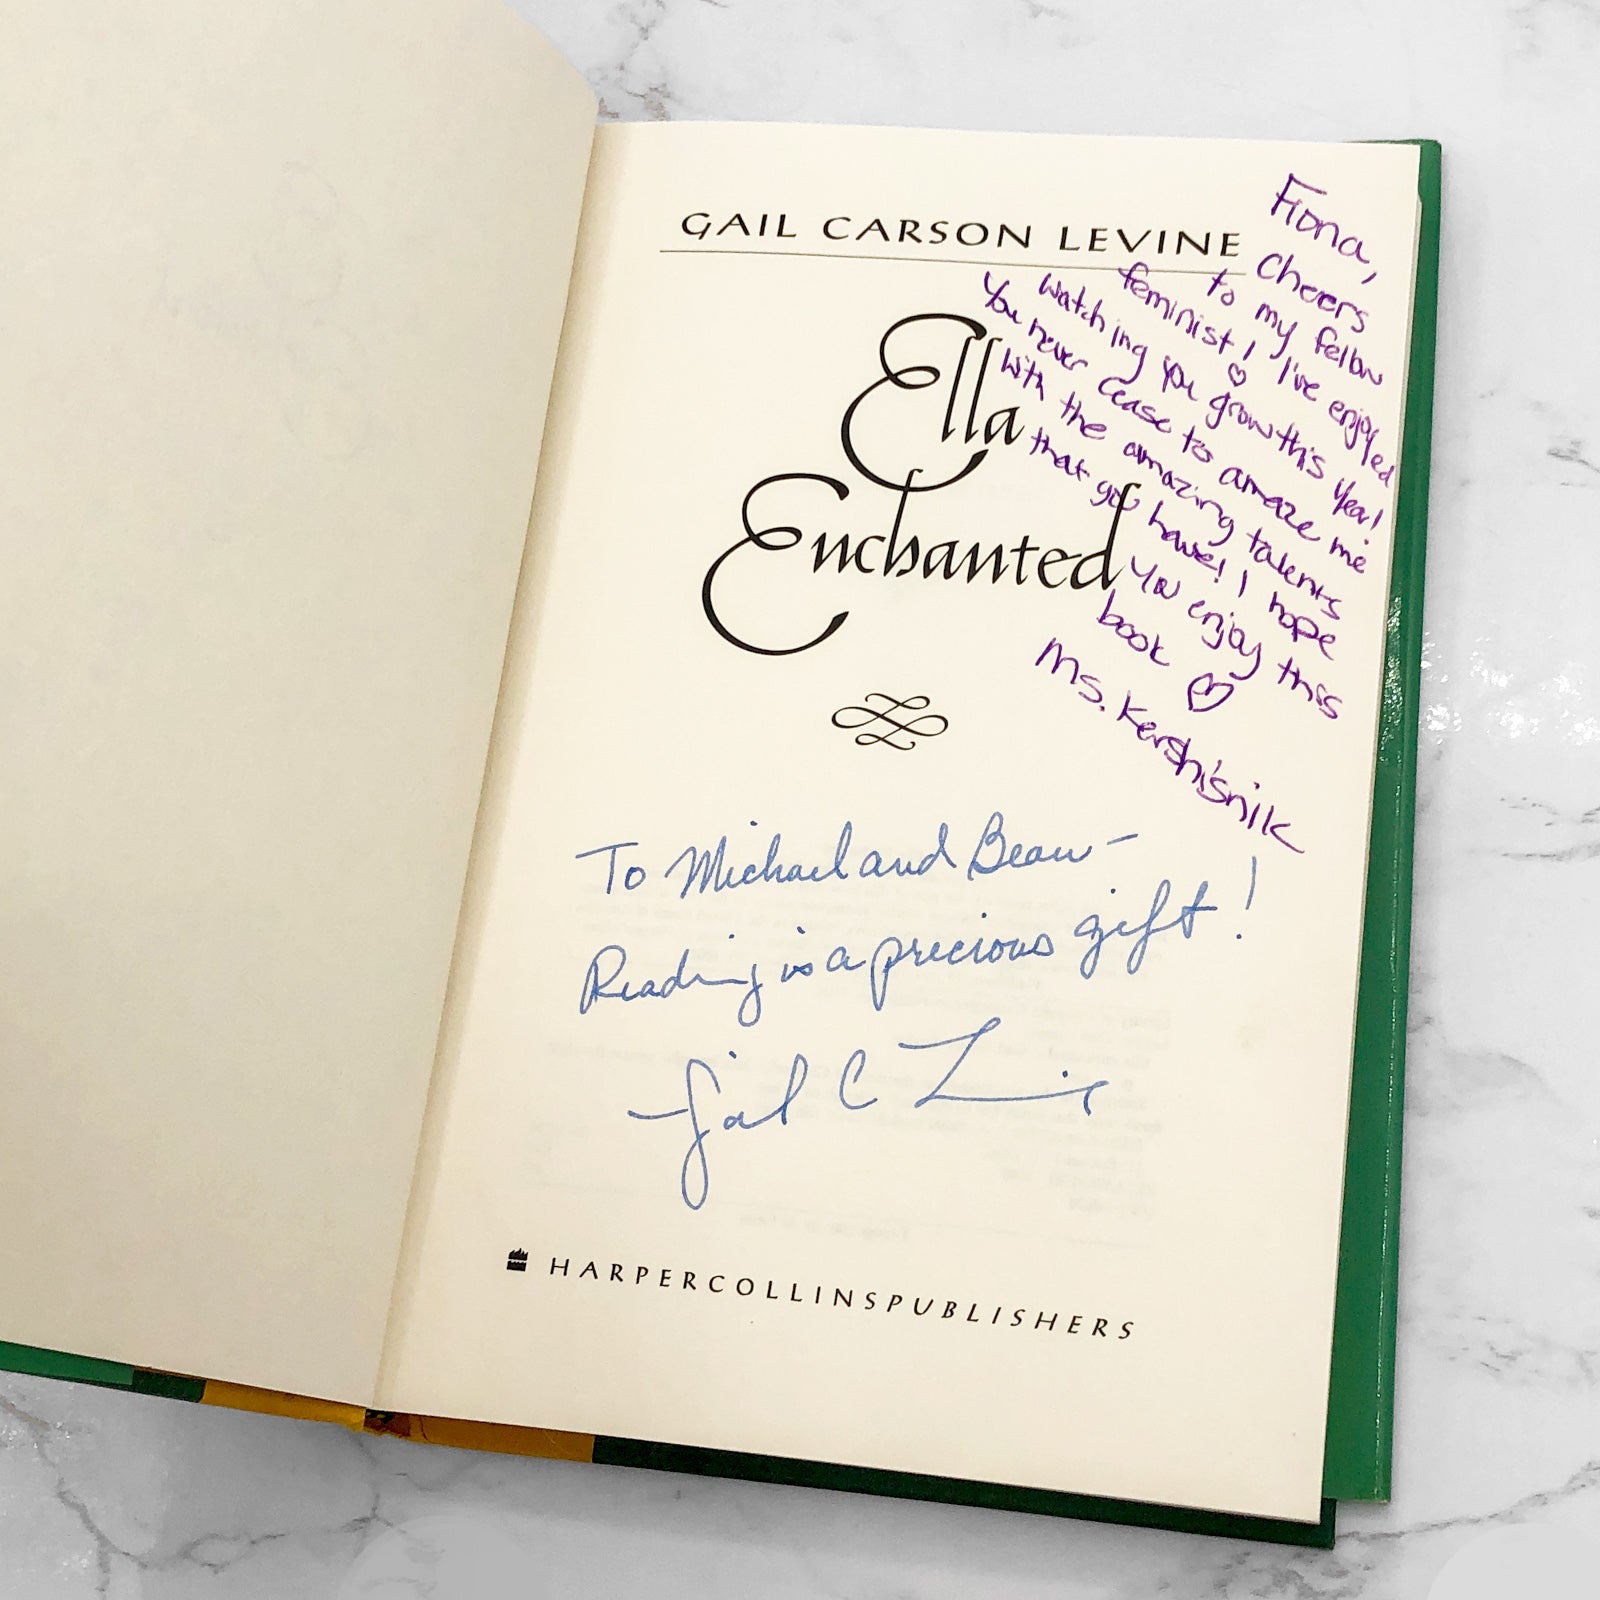 GAIL CARSON LEVINE
Ella
Enchanted
Fiona,
Cheers
to my fellow
feminist! I've enjoyed
watching you grow this year!
You never cease to amaze me
with the amazing talents
that you have! I hope
you enjoy this
book ♡
Ms. Kershisnik
To Michael and Beau –
Reading is a precious gift!
Gail C Levine
HARPERCOLLINSPUBLISHERS